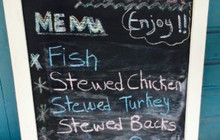 MENU
Enjoy!!
Fish
Stewed Chicken
Stewed Turkey
Stewed Backs